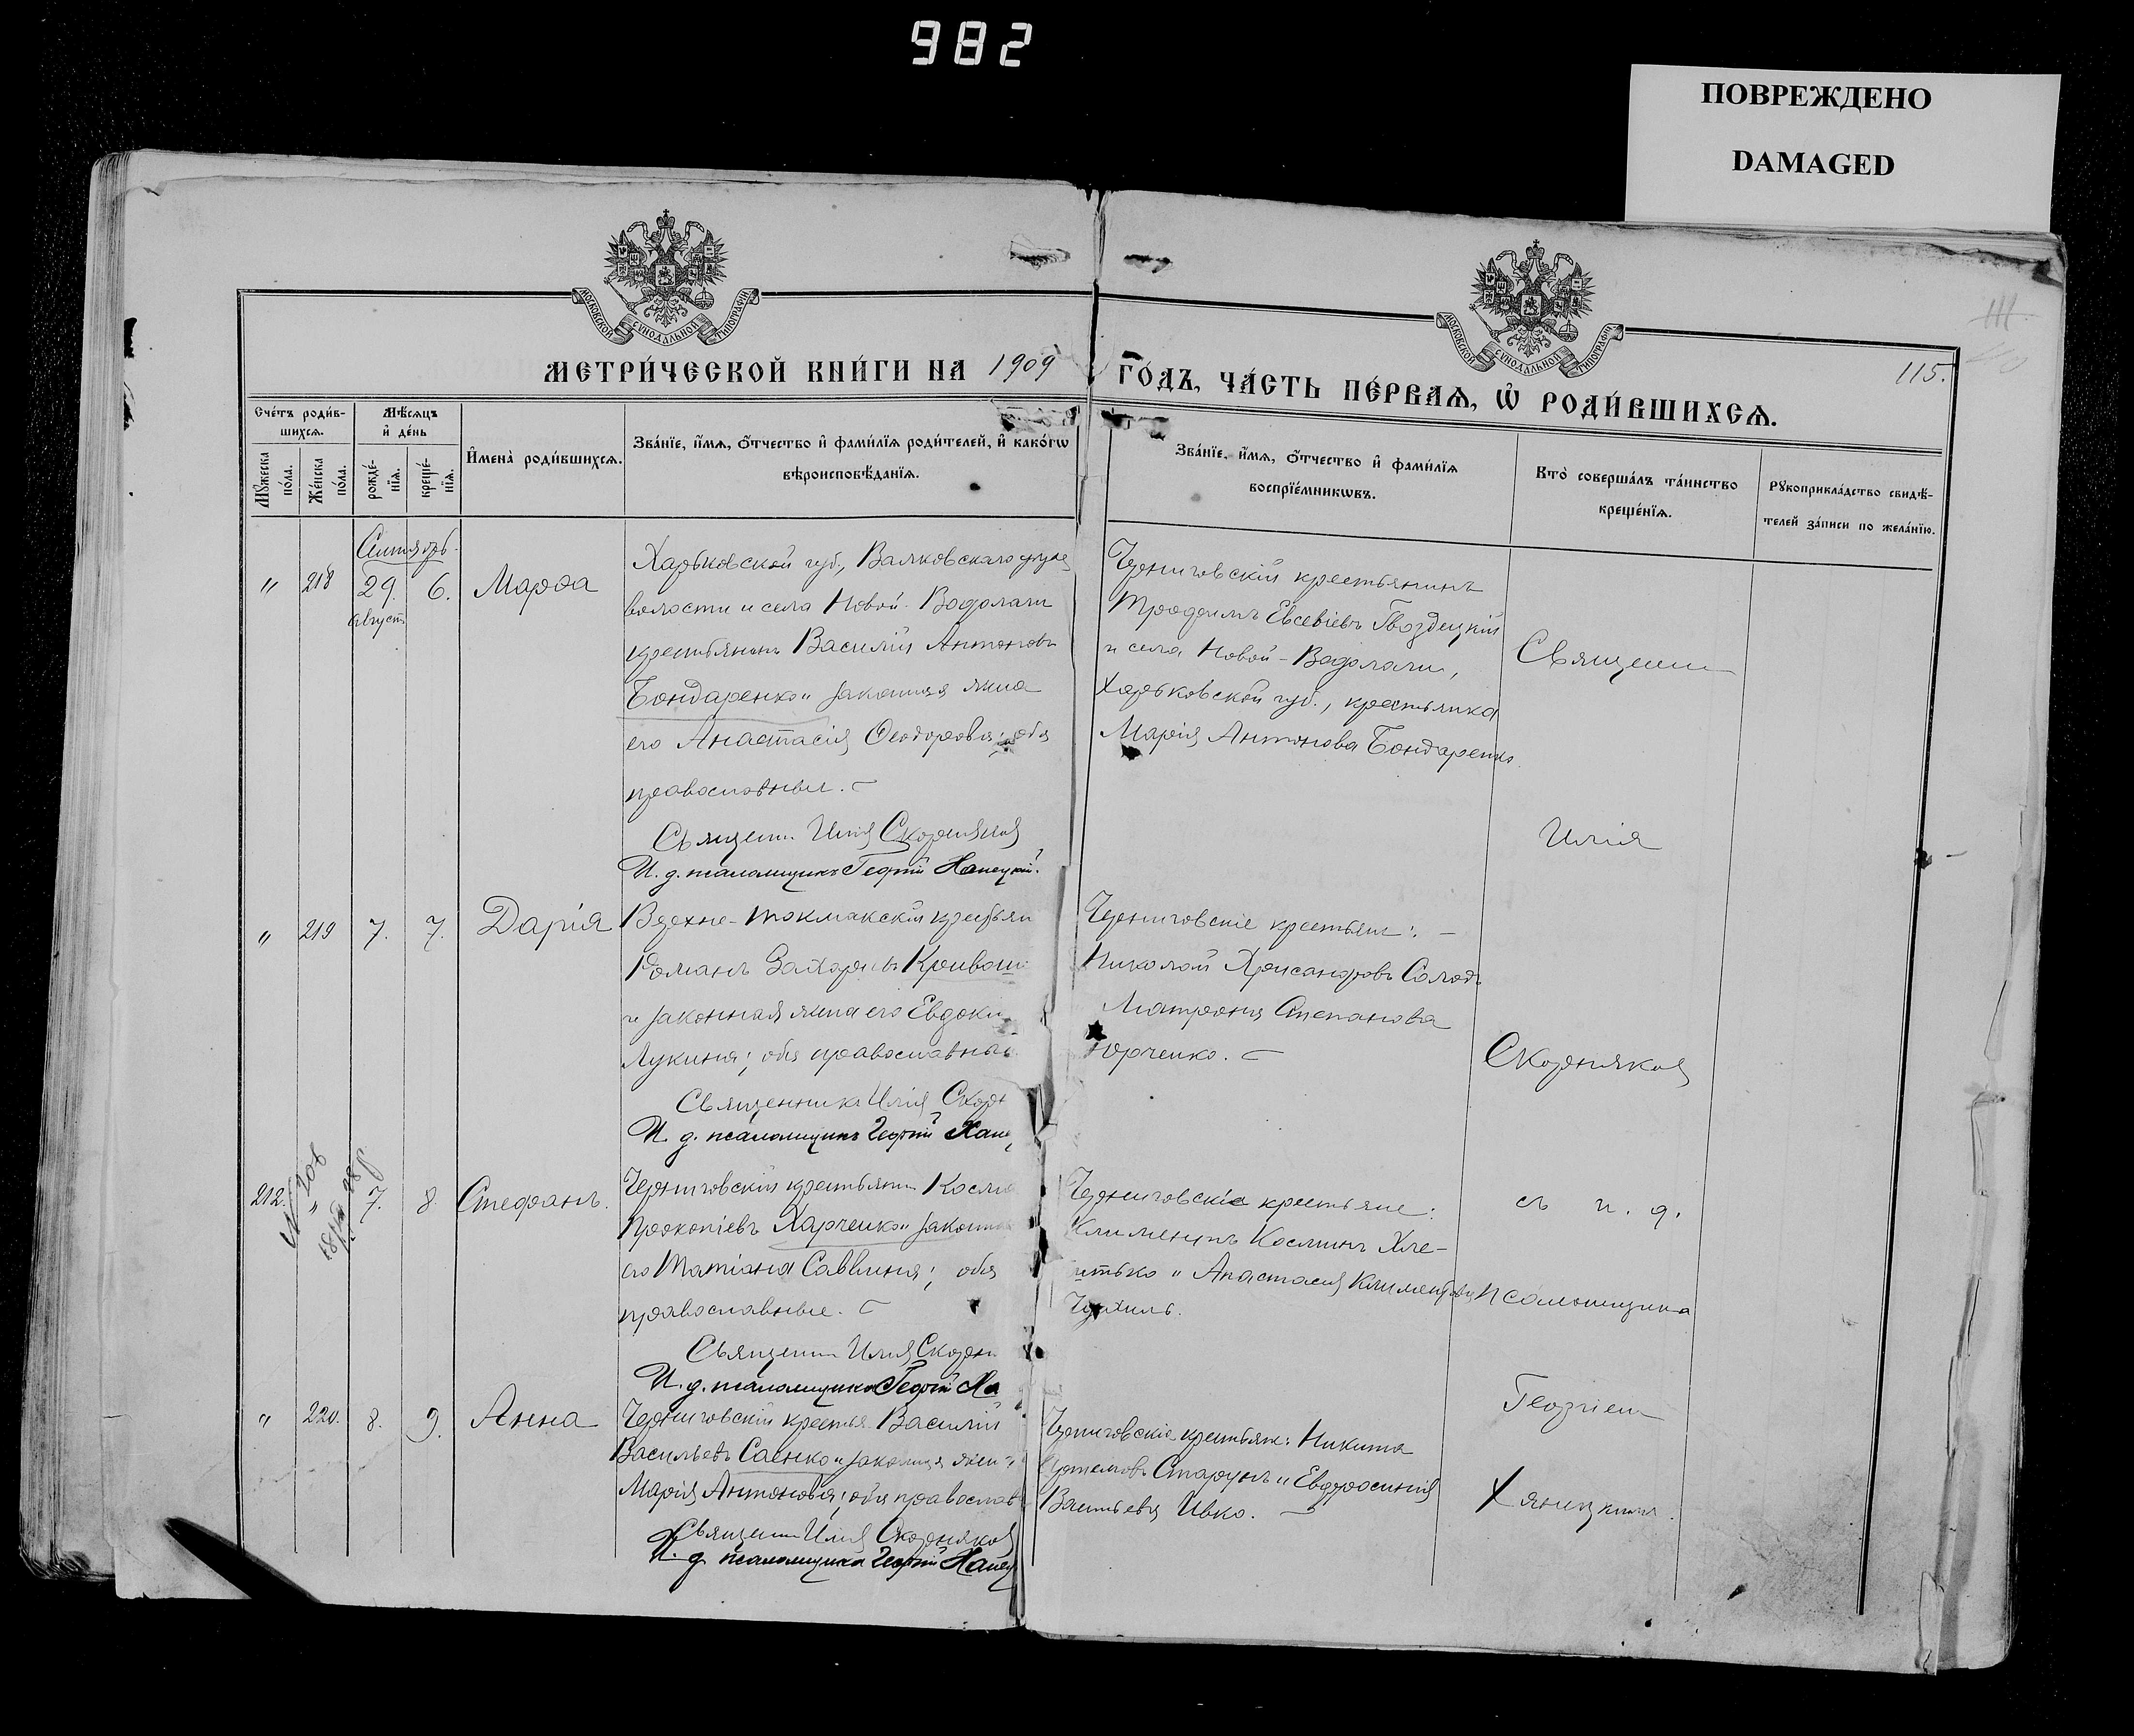 982
ПОВРЕЖДЕНО
DAMAGED
МОСКОВСКОЙ СѴНОДАЛЬНОЙ ТИПОГРАФІИ
МОСКОВСКОЙ СѴНОДАЛЬНОЙ ТИПОГРАФІИ
111.
115.
МЕТРИ́ЧЕСКОЙ КНИ́ГИ НА 1909 ГО́ДЪ, ЧА́СТЬ ПЕ́РВАѦ, Ѽ РОДИ́ВШИХСѦ.
Сче́тъ роди́в-
шихсѧ.
Мꙋжеска
по́ла.
Же́нска
по́ла.
Мѣ́сѧцъ
и҆ де́нь
рожде́-
нїѧ.
креще́-
нїѧ.
И҆мена̀ роди́вшихсѧ.
Зва́нїе, и҆́мѧ, ѻ҆́тчество и҆ фами́лїѧ роди́телей, и҆ како́гѡ
вѣроисповѣ́данїѧ.
Зва́нїе, и҆́мѧ, ѻ҆́тчество и҆ фами́лїѧ
воспрїе́мникѡвъ.
Кто̀ соверша́лъ та́инство
креще́нїѧ.
Рꙋкоприкла́дство свидѣ́-
телей за́писи по жела́нїю.
Сентябрь.
" 218 29. 6. Марѳа
август.
Харьковской губ., Валковскаго уезд
волости и села Новой-Водолаги
крестьянин Василій Антонов
Бондаренко и законная жена
его Анастасія Ѳеодорова; оба
православные. –
Священн Илія Скорняков
И. д. псаломщика Георгій Ханецкій.
Черниговскій крестьянинъ
Трофимъ Евсевіевъ Гвоздецкій
и села Новой-Водолаги,
Харьковской губ., крестьянка
Марія Антонова Бондаренко.
Священни
Илія
" 219 7. 7. Дарія
Верхне-Токмакскій крестьян
Романъ Захаринъ Кривош
и законная жена его Евдоки
Лукина; оба православны
Священникъ Илія Скорн
И. д. псаломщика Георгій Хане
Черниговскіе крестьяне: –
Николай Хрисанфовъ Солод
Матрона Степанова
Юрченко. –
Скорняков
212. " 7. 8. Стефанъ.
Черниговскій крестьянин Косма
Прокопіевъ Харченко и законная
его Татіана Саввина; оба
православные. –
Священн Илія Скорн
И. д. псаломщика Георгій Ха
Черниговскіе крестьяне:
Климентъ Косминъ Хле-
Анастасія Климентова
съ и. д.
Псаломщика
" 220. 8. 9. Анна
Черниговскій крестья Василій
Васильевъ Саенко и законная жен
Марія Антонова; оба православ
Священн Илія Скорняков
И. д. псаломщика Георгій Ханец
Черниговскіе крестьяне: Никита
Артемовъ Старунъ и Евфросинія
Васильева Ивко. –
Георгіем
Ханицким.